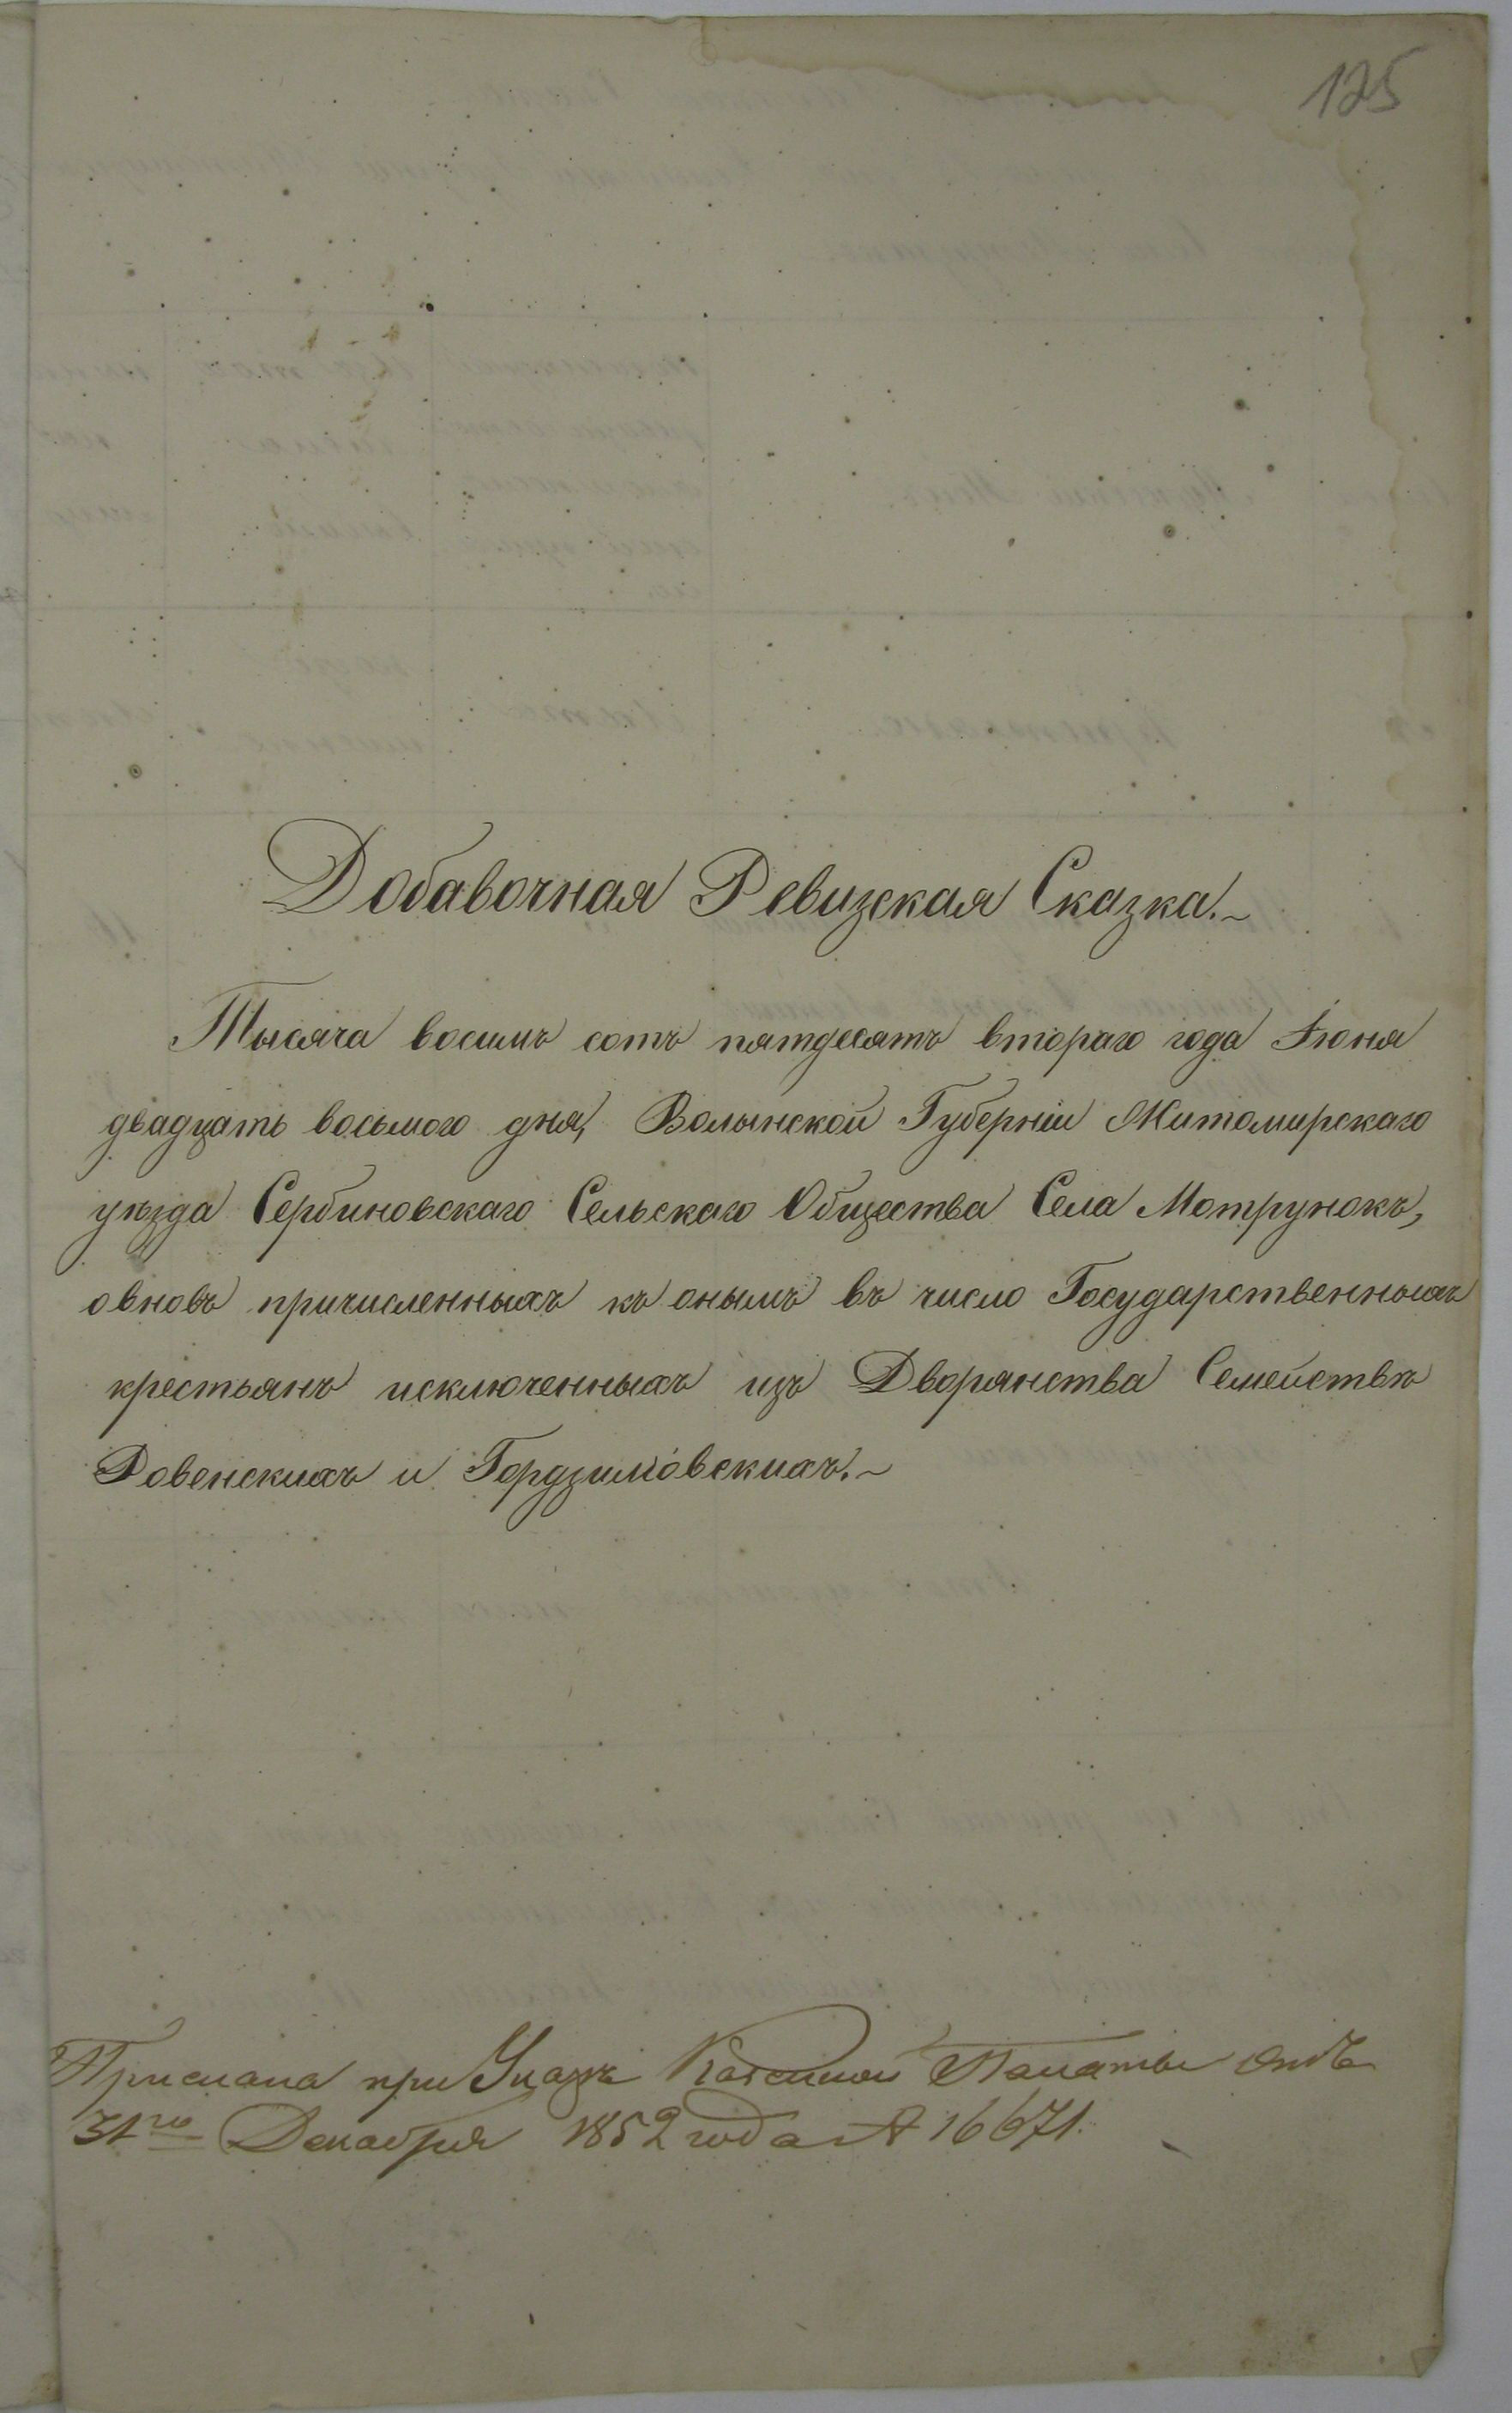 125
Добавочная Ревизская Сказка.~
Тысяча восемь сотъ пятдесятъ втораго года Іюня
двадцать восьмого дня, Волынской Губерніи Житомирскаго
уѣзда Сербиновскаго Сельскаго Общества Села Мотрунокъ,
овновь причисленныхъ къ онымъ въ число Государственныхъ
крестьянъ исключенныхъ изъ Дворянства Семействъ
Ровенскихъ и Гордзиміовскихъ.~
Прислана при Указѣ Казенной Палаты отъ
31го Декабря 1852 года № 16671.